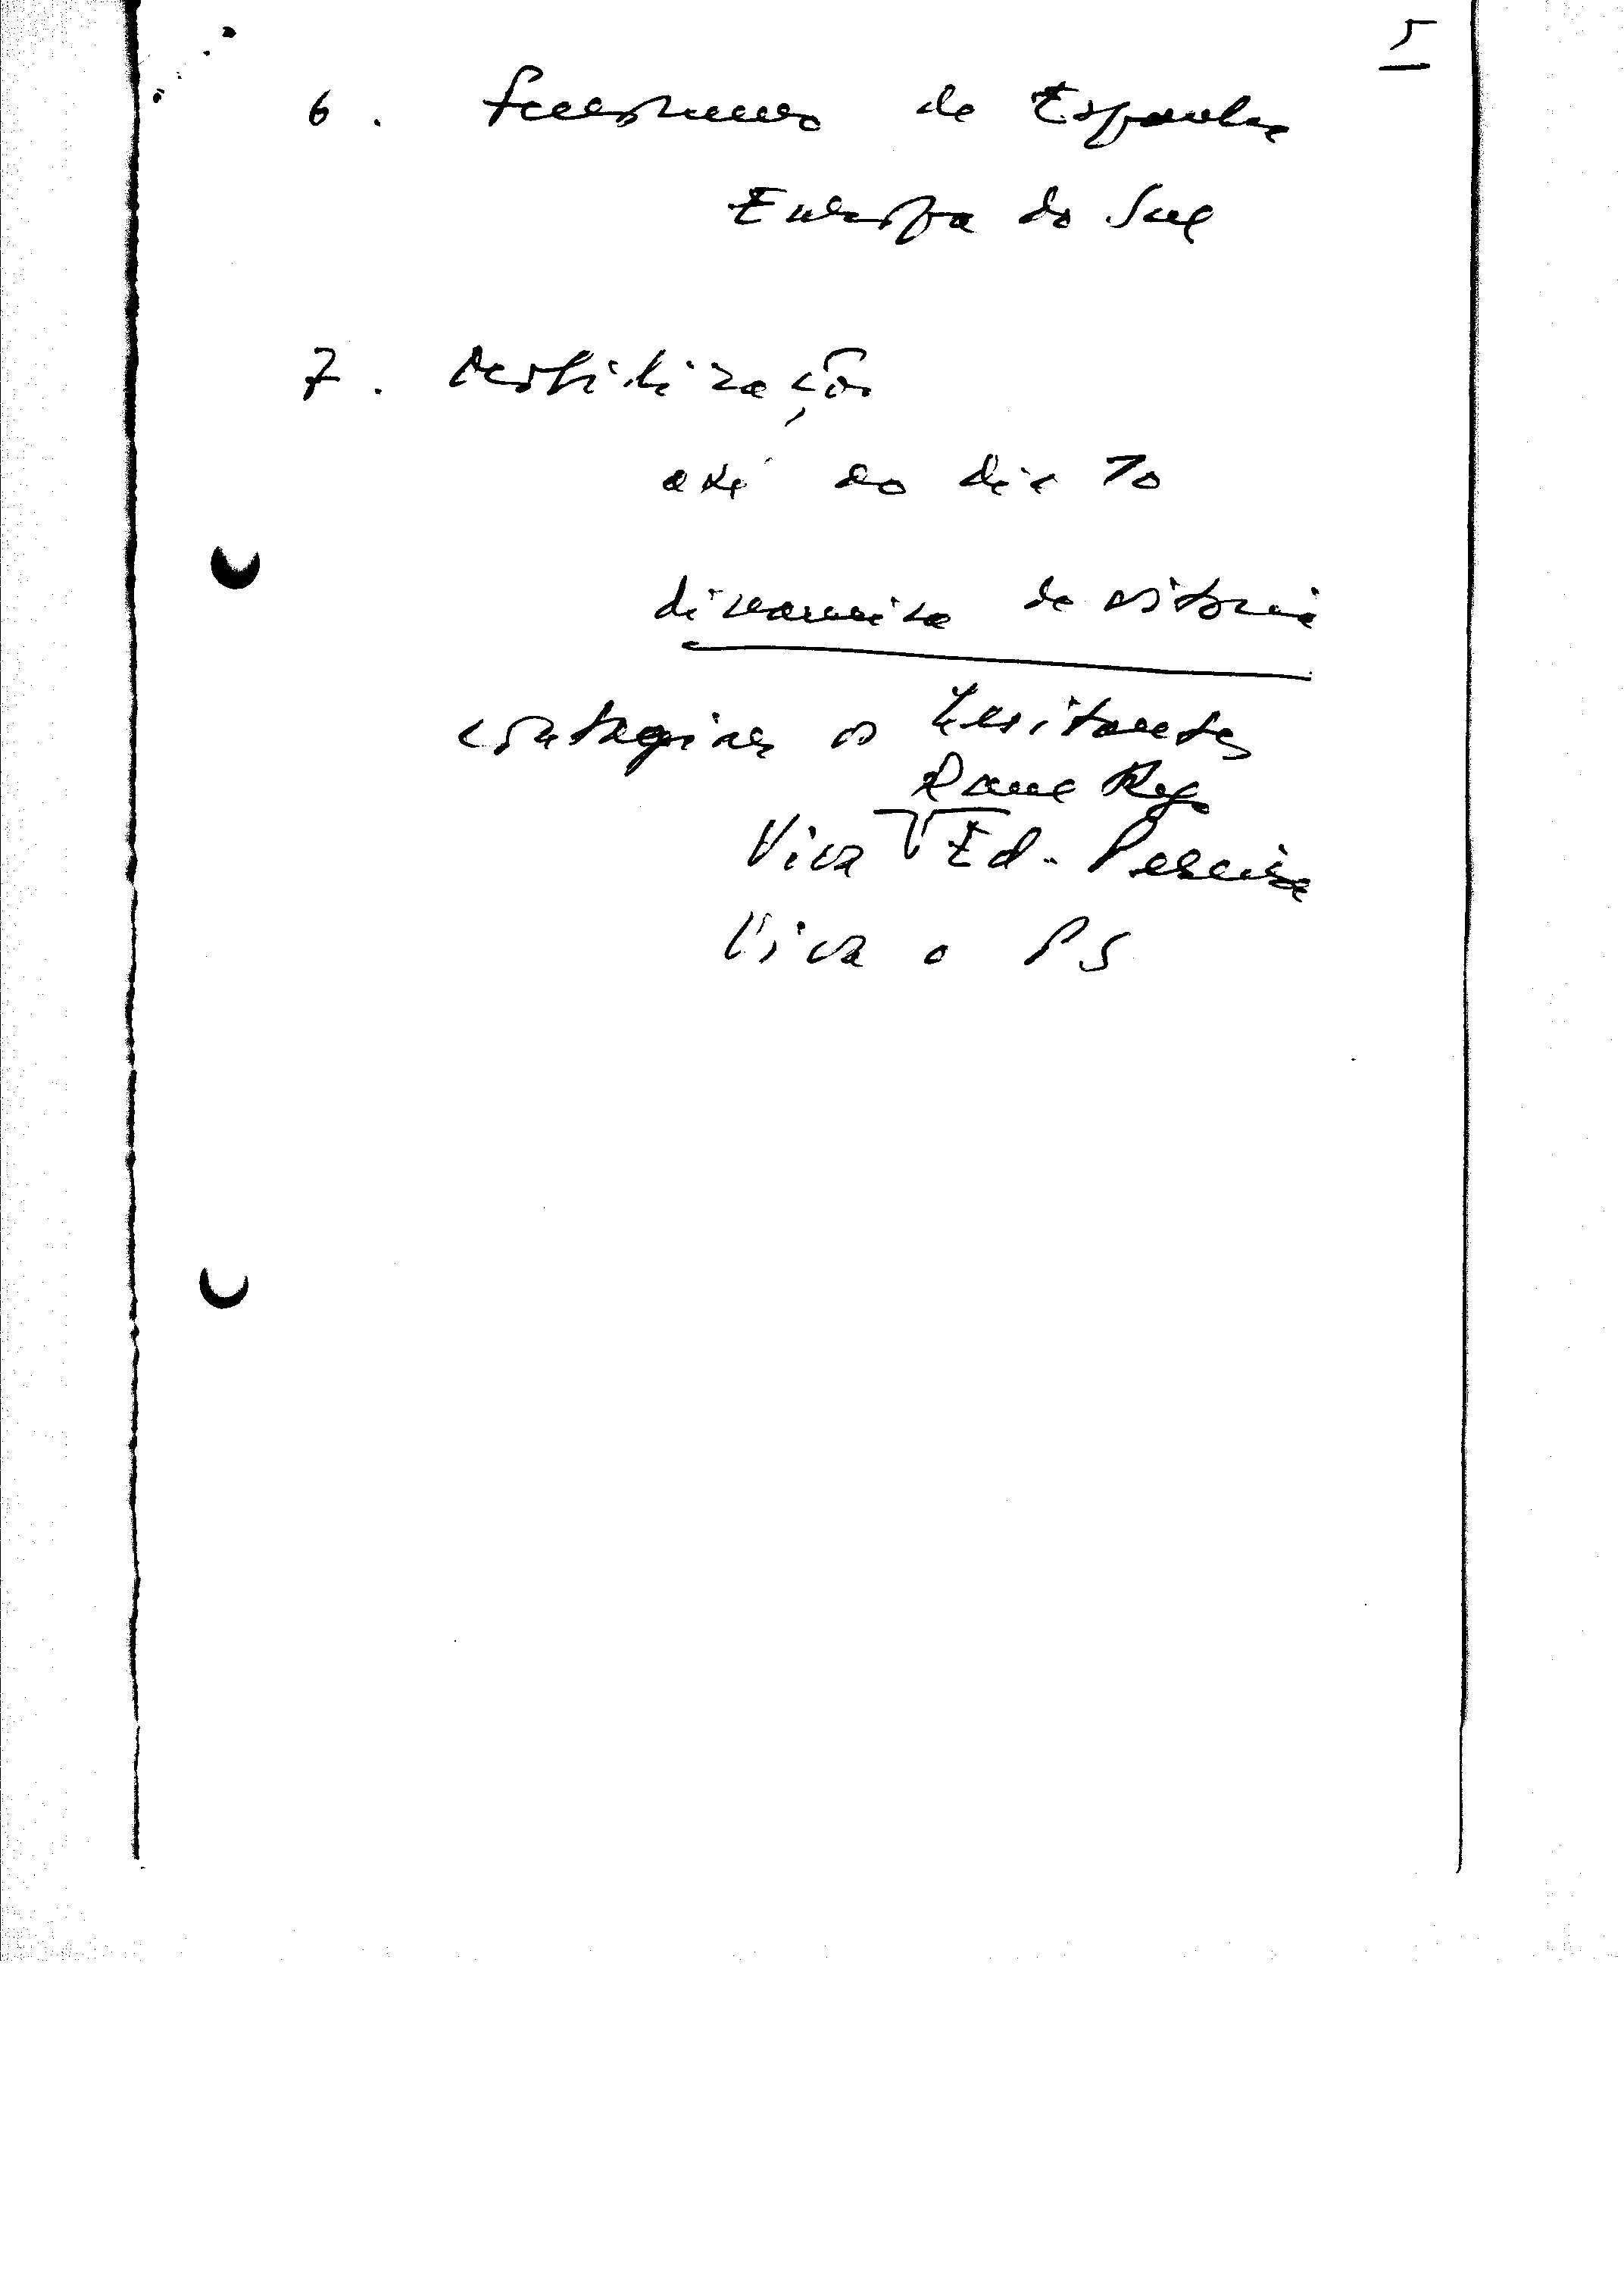 5
6. fenómeno de Espanha
Europa do Sul
7. Mobilização
até ao dia 10
dinamica de vitoria
contagiar os hesitantes
Raul Rego
Viva Ed. Pereira
Viva o PS